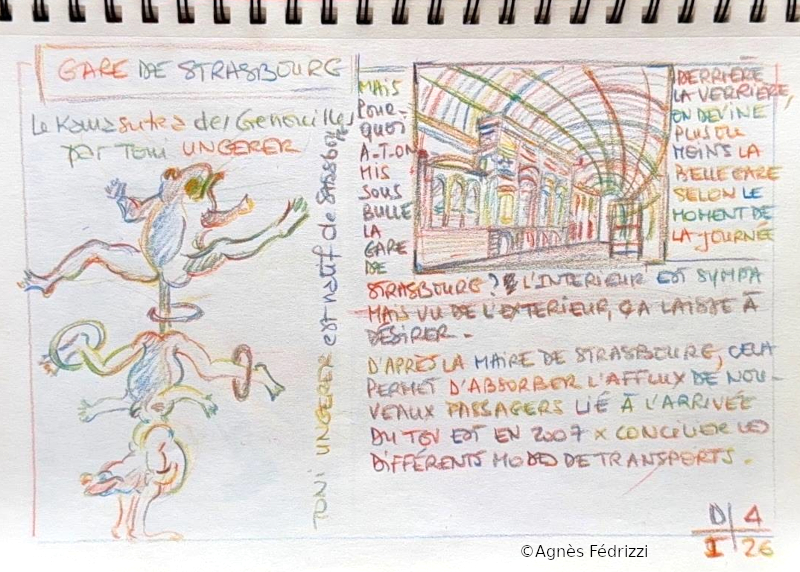 GARE DE STRASBOURG
Le Kamasutra des Grenouilles
par Tomi UNGERER
TOMI UNGERER est natif de STRASBOURG
MAIS
POUR-
QUOI
A-T-ON
MIS
SOUS
BULLE
LA
GARE
DE
STRASBOURG? L'INTERIEUR EST SYMPA
MAIS VU DE L'EXTERIEUR, ÇA LAISSE À
DÉSIRER.
DERRIÈRE
LA VERRIÈRE,
ON DEVINE
PLUS OU
MOINS LA
BELLE GARE
SELON LE
MOMENT DE
LA JOURNÉE
D'APRÈS LA MAIRE DE STRASBOURG, CELA
PERMET D'ABSORBER L'AFFLUX DE NOU-
VEAUX PASSAGERS LIÉ À L'ARRIVÉE
DU TGV EST EN 2007 X CONCILIER LES
DIFFÉRENTS MODES DE TRANSPORTS.
D 4
I 26
©Agnès Fédrizzi